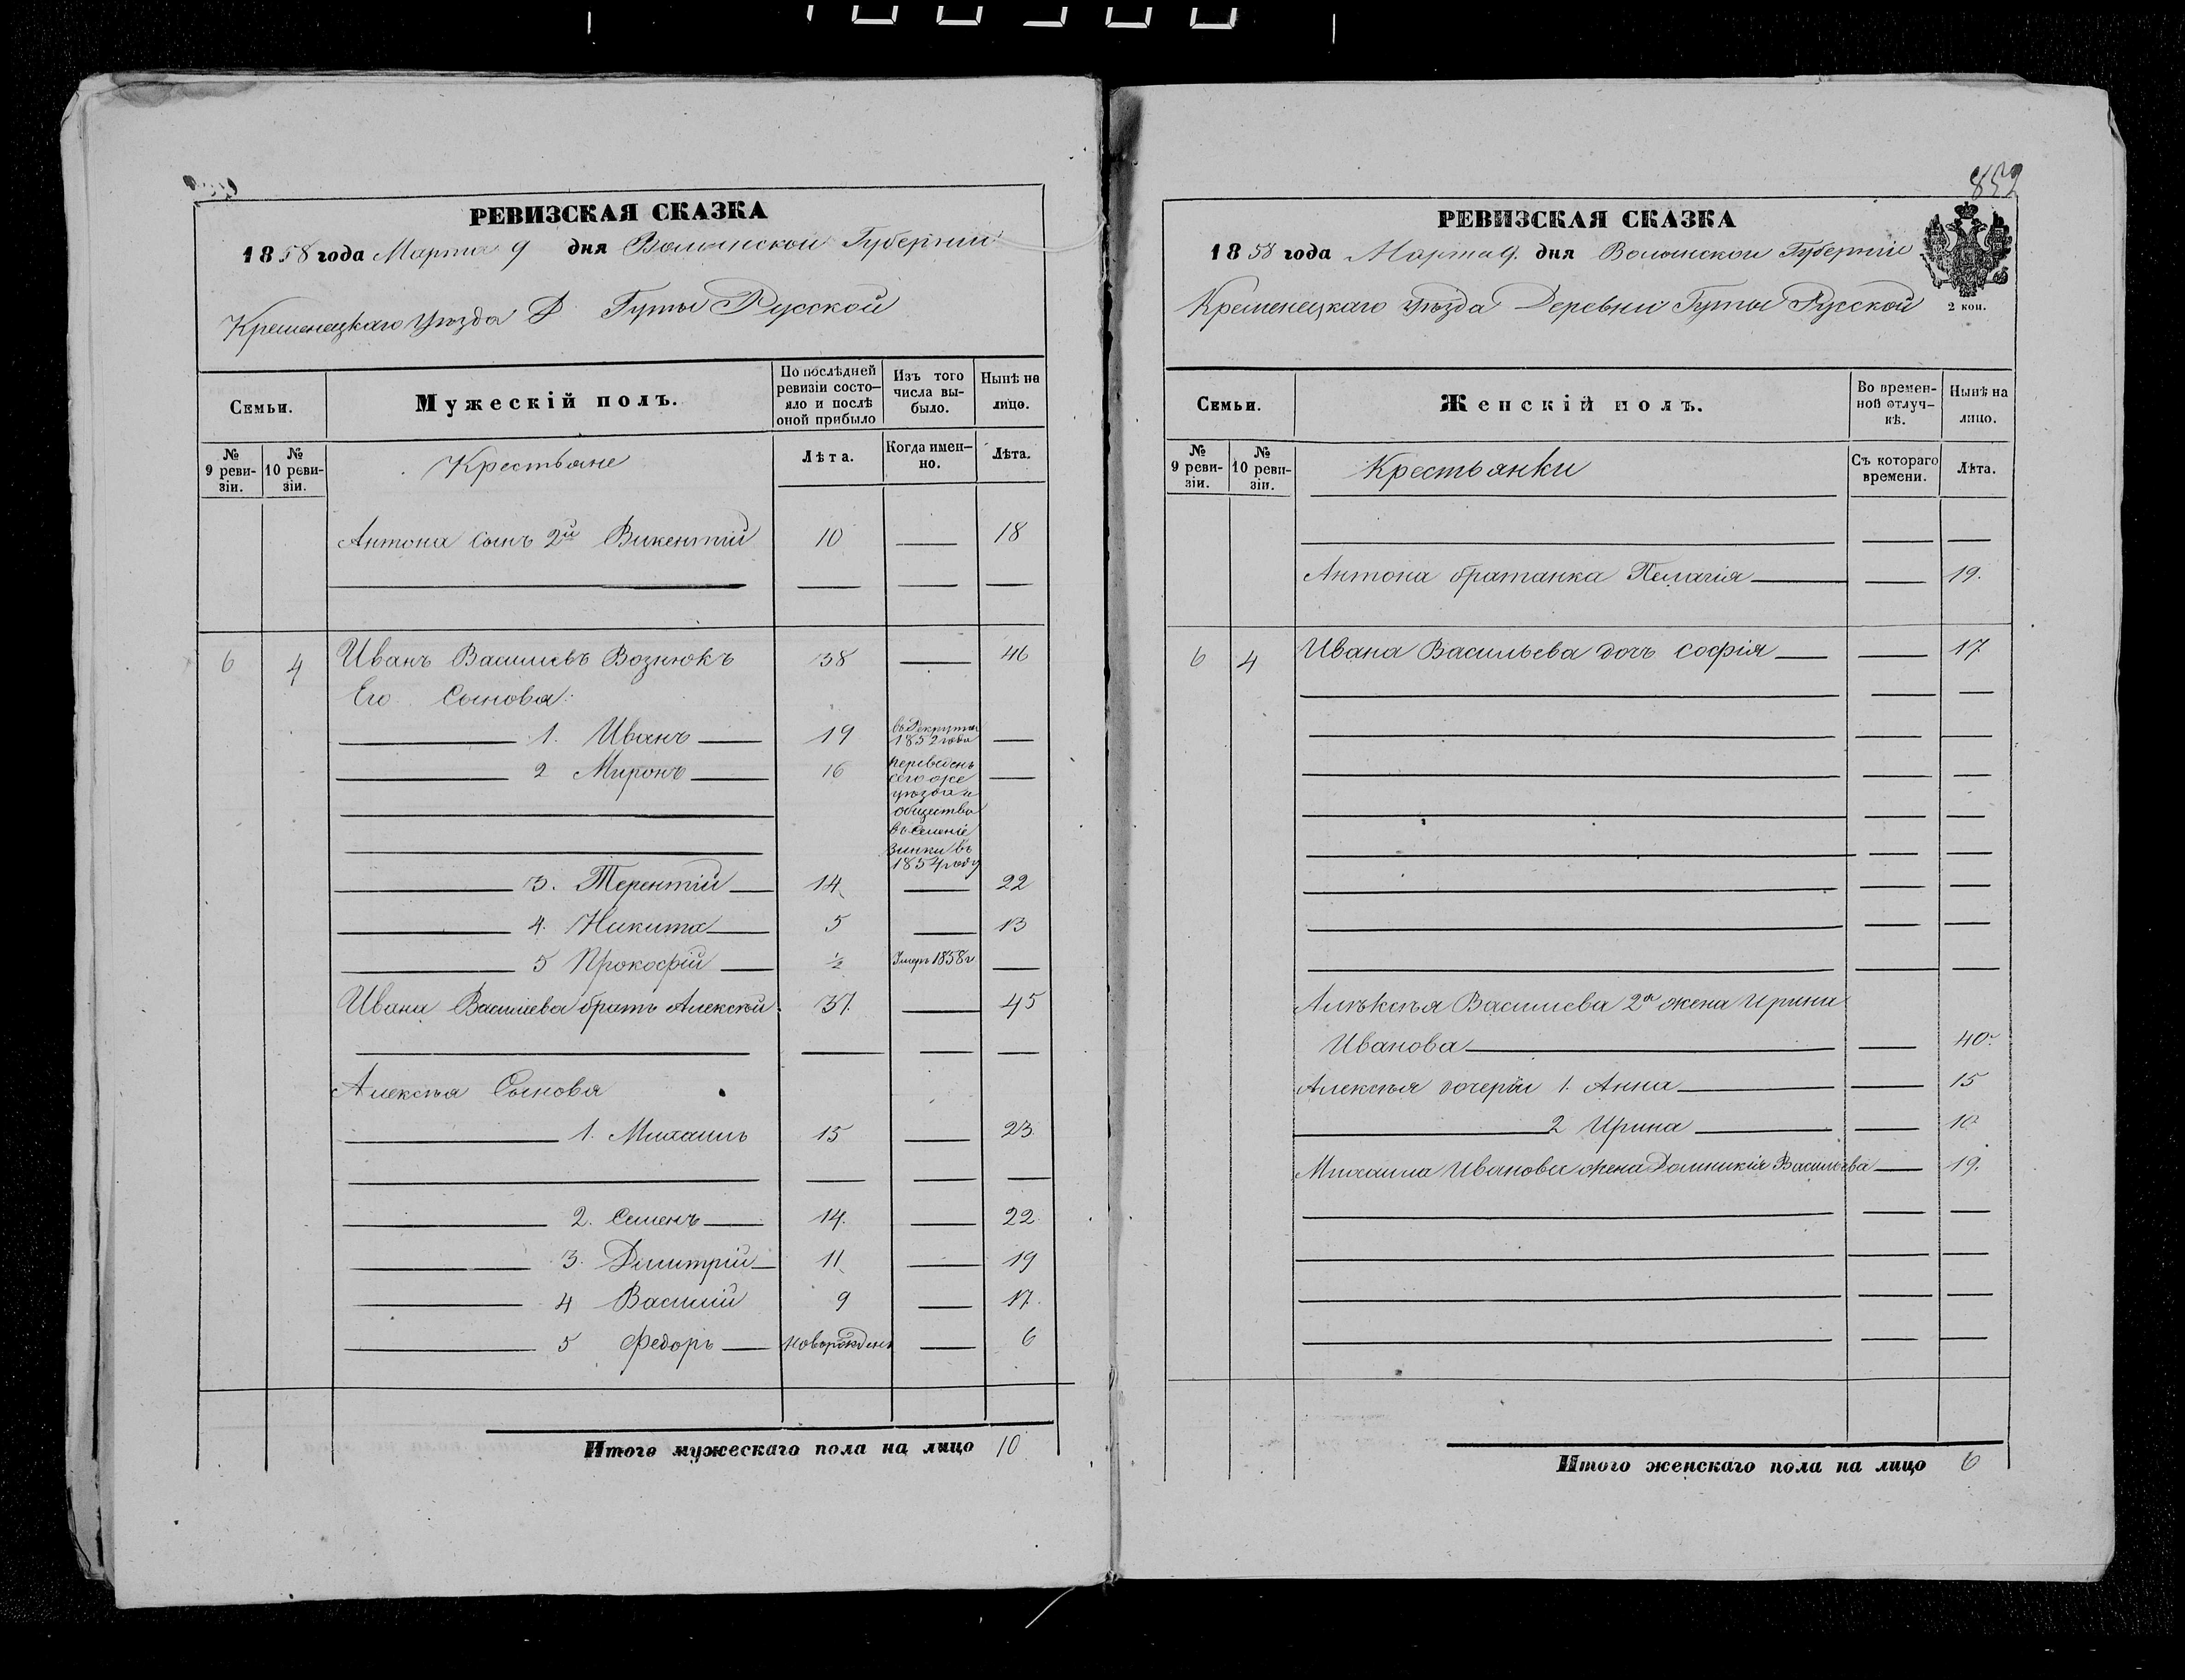 РЕВИЗСКАЯ СКАЗКА
1858 года Марта 9 дня Волынской Губернии
Кременецкаго уѣзда Д. Гуты Русской
Семьи.
Мужескій полъ.
По послѣдней ревизіи состояло и послѣ оной прибыло
Изъ того числа выбыло.
Нынѣ на лицо.
№ 9 ревизіи.
№ 10 ревизіи.
Крестьяне
Лѣта.
Когда именно.
Лѣта.
Антона сынъ 2й Викентій 10 — 18
6 4 Иванъ Васильевъ Вознюкъ 38 — 46
Его Сыновья:
1. Иванъ 19 въ Рекруты 1852 года —
2 Миронъ 16 переведенъ сего же уѣзда и общества въ селеніе Зинки въ 1854 году —
3. Терентій 14 — 22
4. Никита 5 — 13
5 Прокофій ½ Умеръ 1858 г —
Ивана Васильева братъ Алексѣй 37. — 45
Алексѣя Сыновья
1. Михаилъ 15 — 23
2. Семенъ 14. — 22
3. Димитрій 11 — 19
4 Василій 9 — 17.
5 Федоръ новорожденъ — 6
Итого мужескаго пола на лицо 10
852
РЕВИЗСКАЯ СКАЗКА
1858 года Марта 9. дня Волынской Губерніи
Кременецкаго уѣзда Деревни Гуты Русской
2 коп.
Семьи.
Женскій полъ.
Во временной отлучкѣ.
Нынѣ на лицо.
№ 9 ревизіи.
№ 10 ревизіи.
Крестьянки
Съ котораго времени.
Лѣта.
Антона братанка Пелагія — 19.
6 4 Ивана Васильева дочь Софія — 17
Алѣксѣя Васильева 2я жена Ирина
Иванова — 40.
Алексѣя дочери 1. Анна — 15
2 Ирина — 10
Михаила Иванова жена Домникія Васильева — 19.
Итого женскаго пола на лицо 6